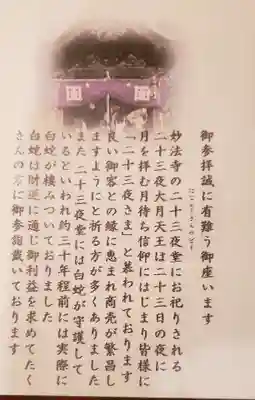 御参拝誠に有難う御座います
妙法寺の二十三夜堂にお祀りされる
にじゅうさんやどう
二十三夜大月天王は二十三日の夜に
月を拝む月待ち信仰にはじまり皆様に
「二十三夜さま」と慕われております
良い御客との縁に恵まれ商売が繁昌し
ますようにと祈る方が多くありました
また二十三夜堂には白蛇が守護して
いるといわれ約三十年程前には実際に
白蛇が棲みついておりました
白蛇は財運に通じ御利益を求めてたく
さんの方に御参詣戴いております